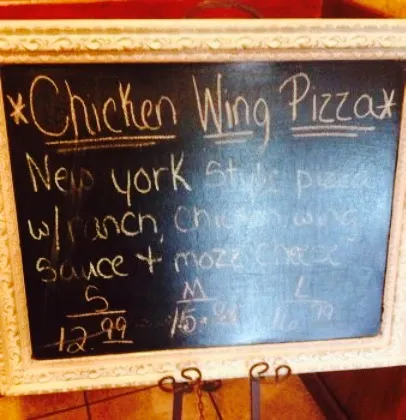 *Chicken Wing Pizza*
New york Style pizza
w/ranch, Chicken wing
sauce + mozz cheese
S M L
12.99 15.99